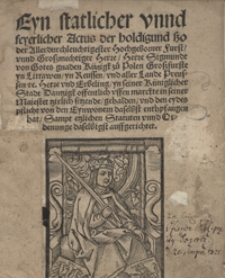 Eyn statlicher vnnd
feyerlicher Actus der holdigund szo
der Allerdurchleuchtigester Hochgeborner Furst/
vund Groszmechtiger Herre/ Herre Sigmunde
von Gotes gnaden Künigk zu Polen Groszfurste
zu Littawen/ zu Reussen/ vnd aller Lande Preus-
sen ec. Herre vnd Erbeling/ yn seiner Küniglicher
Stade Dantzigk offentlich vffen marckte in seiner
Maiestet zirlich sitzende/ gehalden/ vnd den eydes
pflicht von den Eynwonern daselbst entphangen
hat/ Sampt etzlichen Statuten vnnd Or-
denunge daselbigst auffgerichtet.